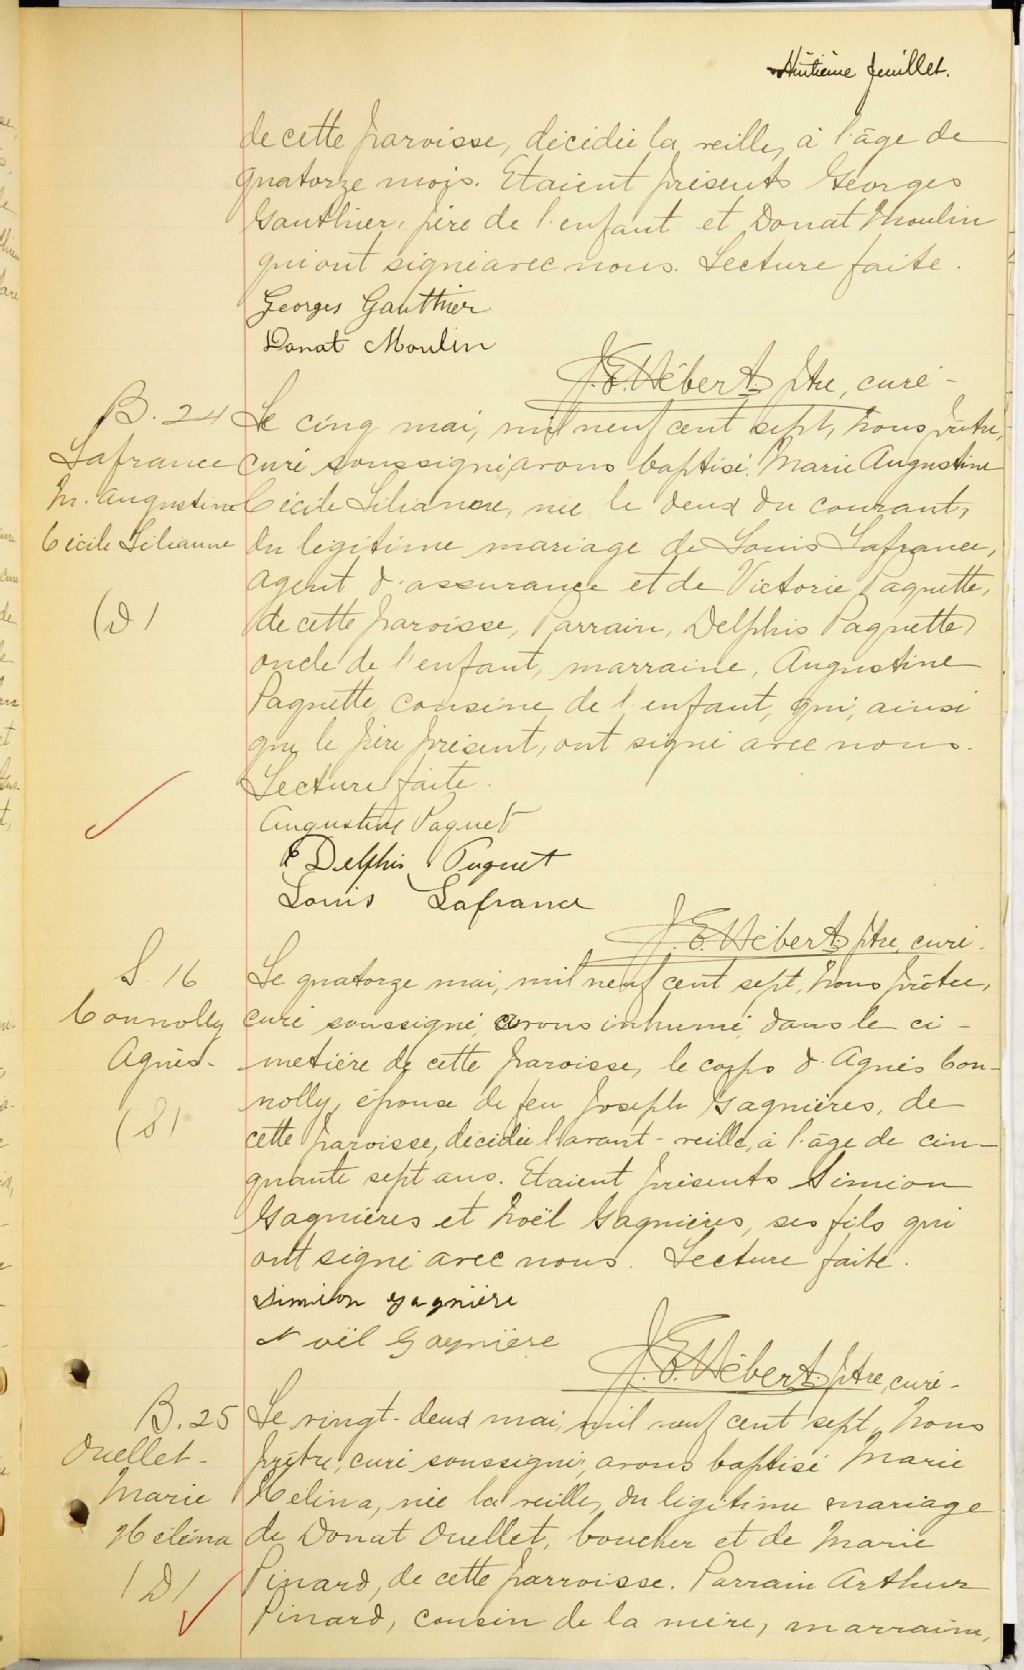 Huitième feuillet.
de cette paroisse, décédée la veille, à l'âge de
quatorze mois. Etaient présents Georges
Gauthier, père de l'enfant et Donat Moulin
qui ont signé avec nous. Lecture faite.
Georges Gauthier
Donat Moulin
J. E. Hébert Ptre, curé-
B. 24
Lafrance
M. Augustine
Cécile Lilianne
(D)
Le cinq mai, mil neuf cent sept, Nous prêtre,
curé soussigné, avons baptisé, Marie Augustine
Cécile Lilianne, née le deux du courant,
du légitime mariage de Louis Lafrance,
agent d'assurance et de Victorie Paquette,
de cette paroisse, Parrain, Delphis Paquette,
oncle de l'enfant, marraine, Augustine
Paquette, cousine de l'enfant, qui, ainsi
que le père présent, ont signé avec nous.
Lecture faite.
Augustine Paquet
Delphis Paquet
Louis Lafrance
J. E. Hébert Ptre, curé-
S. 16
Connolly
Agnès-
(S)
Le quatorze mai, mil neuf cent sept, Nous prêtre,
curé soussigné, avons inhumé, dans le ci-
metière de cette paroisse, le corps d'Agnès Con-
nolly, épouse de feu Joseph Gagnières, de
cette paroisse, décédée l'avant-veille, à l'âge de cin-
quante sept ans. Etaient présents Siméon
Gagnières et Noël Gagnières, ses fils qui
ont signé avec nous. Lecture faite.
Siméon gagnière
Noël Gagnière
J. E. Hébert, Ptre, curé-
B. 25
Ouellet-
Marie
Héléna
(D)
Le vingt-deux mai, mil neuf cent sept, Nous
prêtre, curé soussigné, avons baptisé Marie
Helina, née la veille, du légitime mariage
de Donat Ouellet, boucher et de Marie
Pinard, de cette parroisse. Parrain Arthur
Pinard, cousin de la mère, marraine,